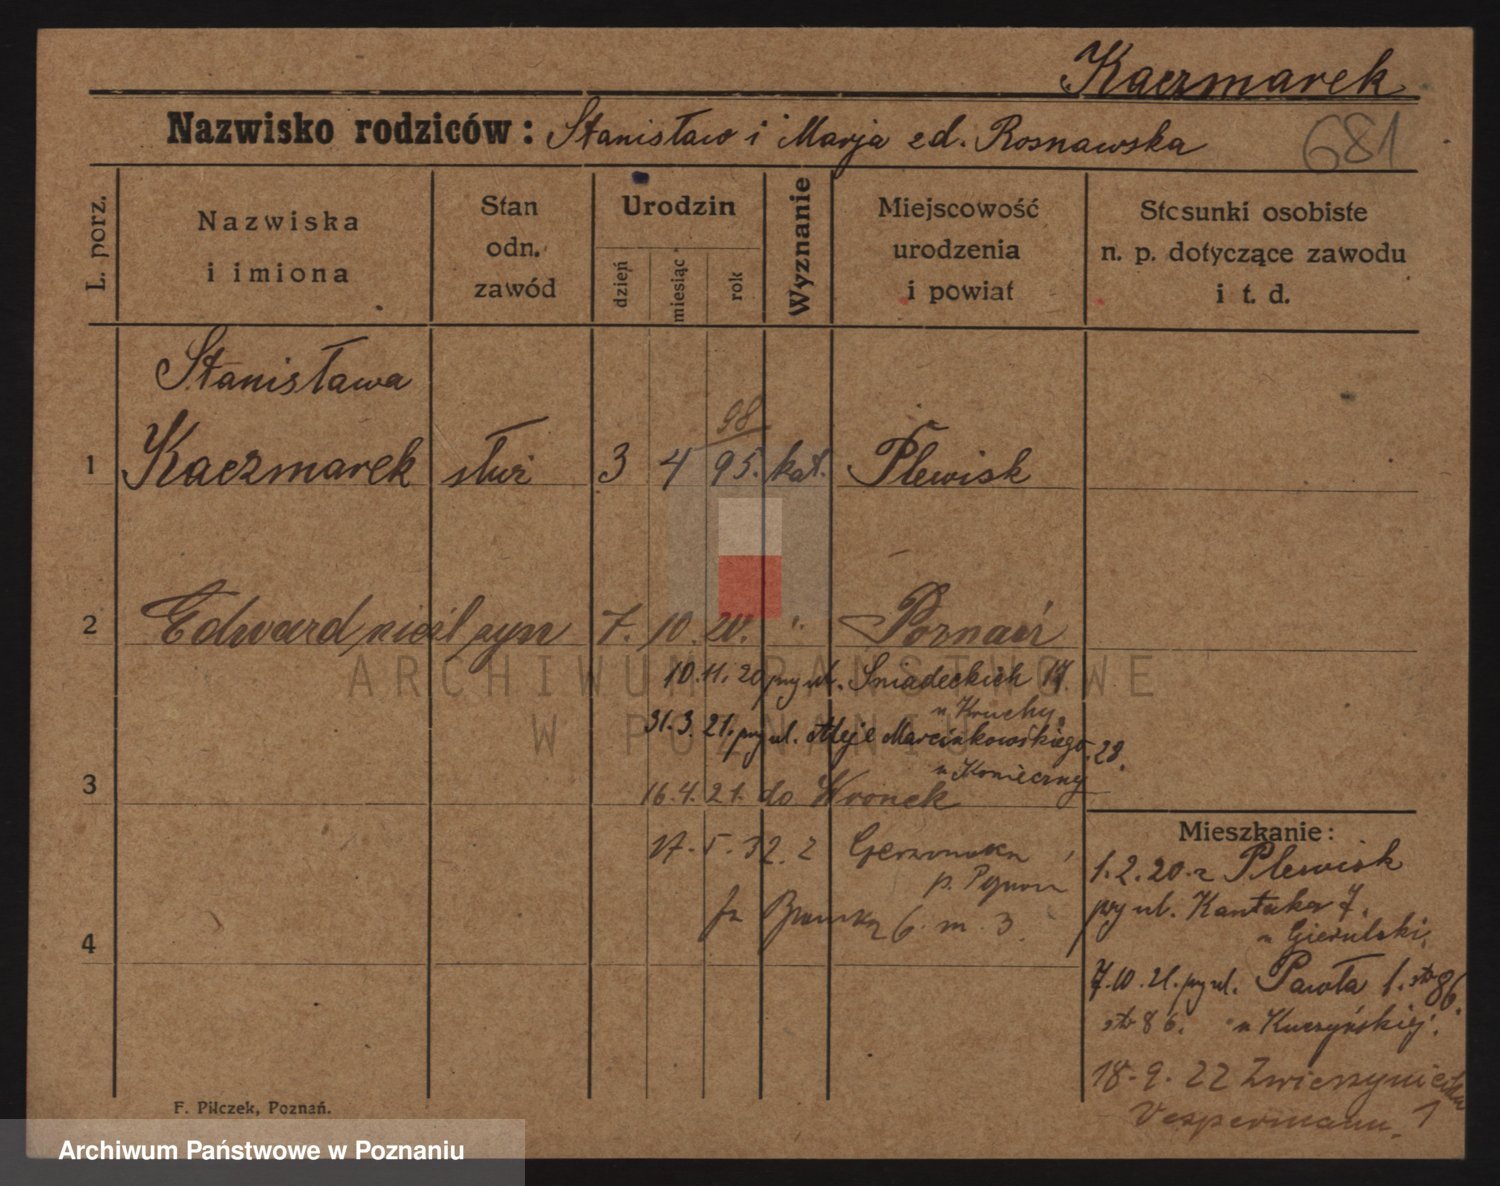 Kaczmarek
Nazwisko rodziców: Stanisław i Marja zd. Rosnawska 681
L. porz.
Nazwiska
i imiona
Stan
odn.
zawód
Urodzin
dzień
miesiąc
rok
Wyznanie
Miejscowość
urodzenia
i powiat
Stosunki osobiste
n. p. dotyczące zawodu
i t. d.
Stanisława
98
1 Kaczmarek służ 3 4 95. kat. Plewisk
2 Edward nieśl syn 7. 10. 20. " Poznań
10.11.20 przy ul. Śniadeckich
u Kruchy.
31.3.21. przy ul. Aleje Marcinkowskiego 28.
u Konieczny
3 16.4.21. do Wronek
17.5.32. z
6 m. 3.
4
Mieszkanie:
1.2.20 z Plewisk
przy ul. Kantaka 7.
u Gierulski,
7.10.21. przy ul. Pawła 1. str 86.
str 86. u Kuczyńskiej.
18-9.22 Zwierzyniecka
Vespermann. 1
F. Pilczek, Poznań.
ARCHIWUM PAŃSTWOWE
W POZNANIU
Archiwum Państwowe w Poznaniu